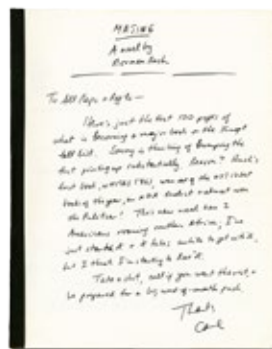 MATING
A novel by
Norman Rush
To All Reps & Regls —
Here's just the first 100 pages of
what is becoming a major book on the Knopf
fall list. Sonny is thinking of bumping the
first printing up substantially. Reason? Rush's
first book, WHITES (1986), was one of the
book of the year, an
the Pulitzer! This new novel has 2
Americans roaming southern Africa; I've
just started it & it takes awhile to get with it,
but I think I'm starting to
Take a shot, call if you want the rest, &
be prepared for a big word-of-mouth push.
Thanks
Carl